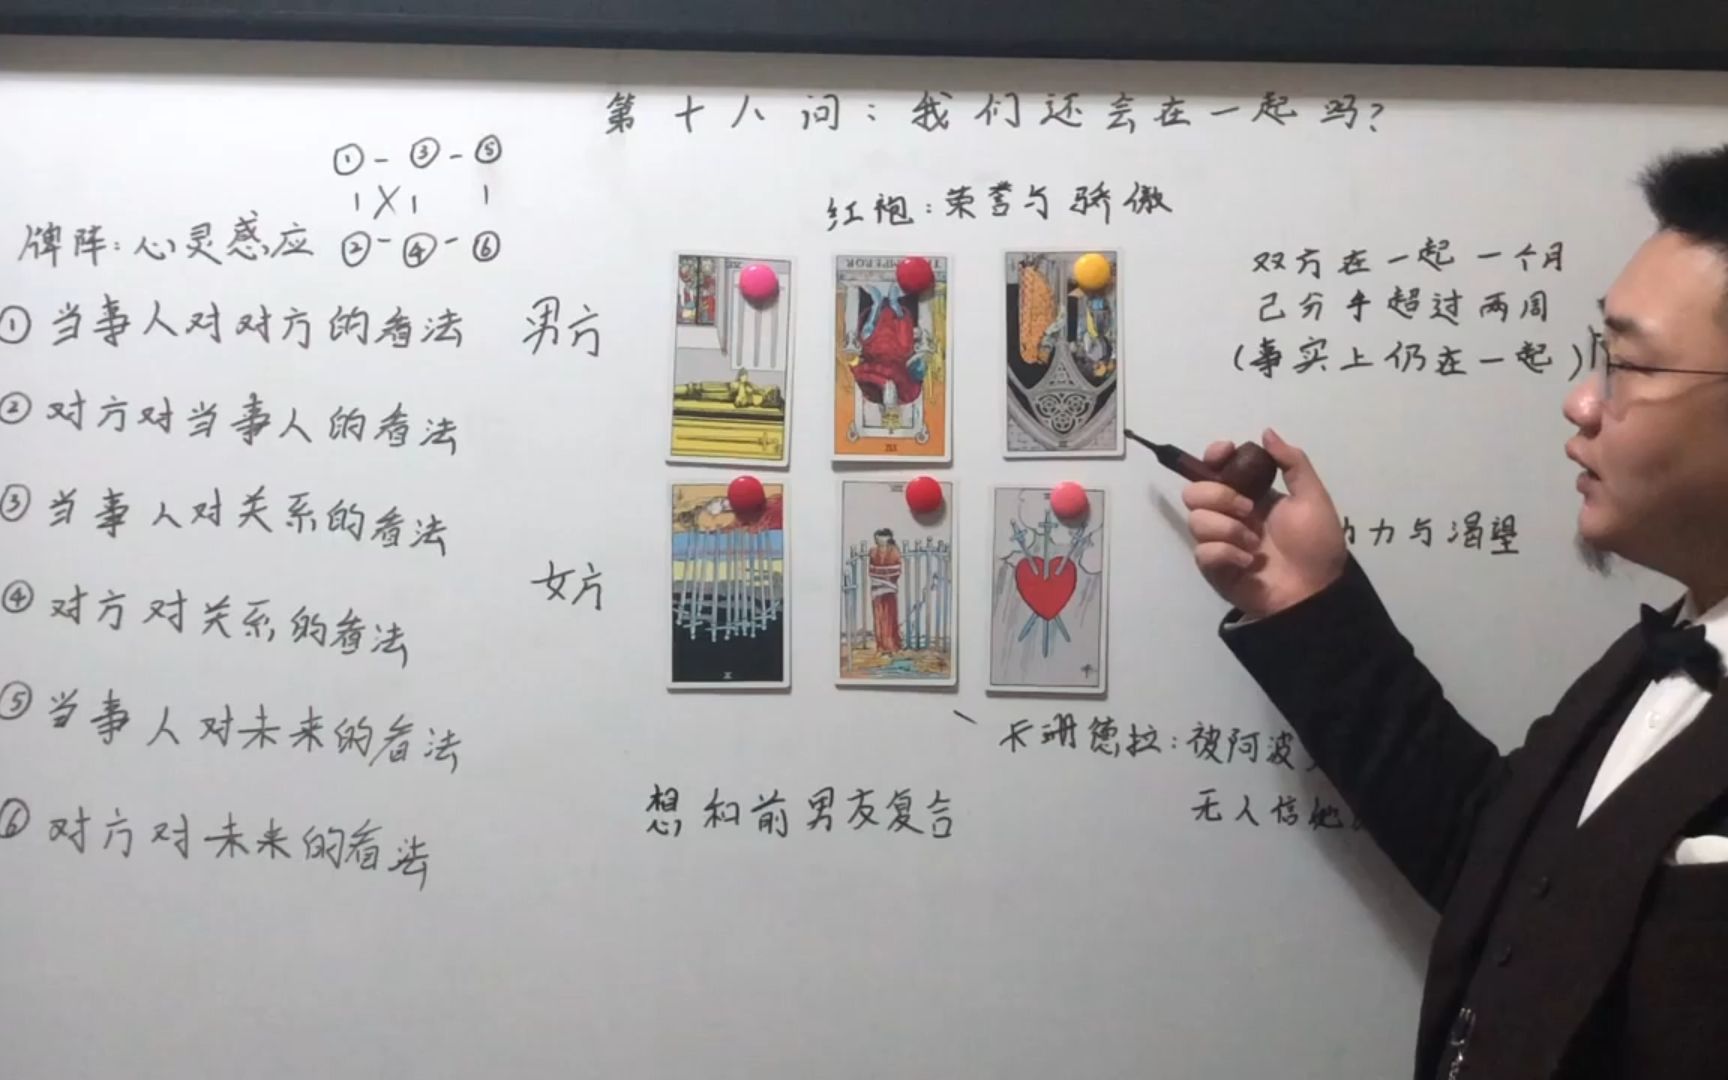 第十人问：我们还会在一起吗?
①-③-⑤
②-④-⑥
牌阵：心灵感应
①当事人对对方的看法
②对方对当事人的看法
③当事人对关系的看法
④对方对关系的看法
⑤当事人对未来的看法
⑥对方对未来的看法
男方
女方
红袍：荣誉与骄傲
双方在一起一个月
已分手超过两周
(事实上仍在一起)
力与渴望
卡珊德拉：被阿波
无人信她
想和前男友复合